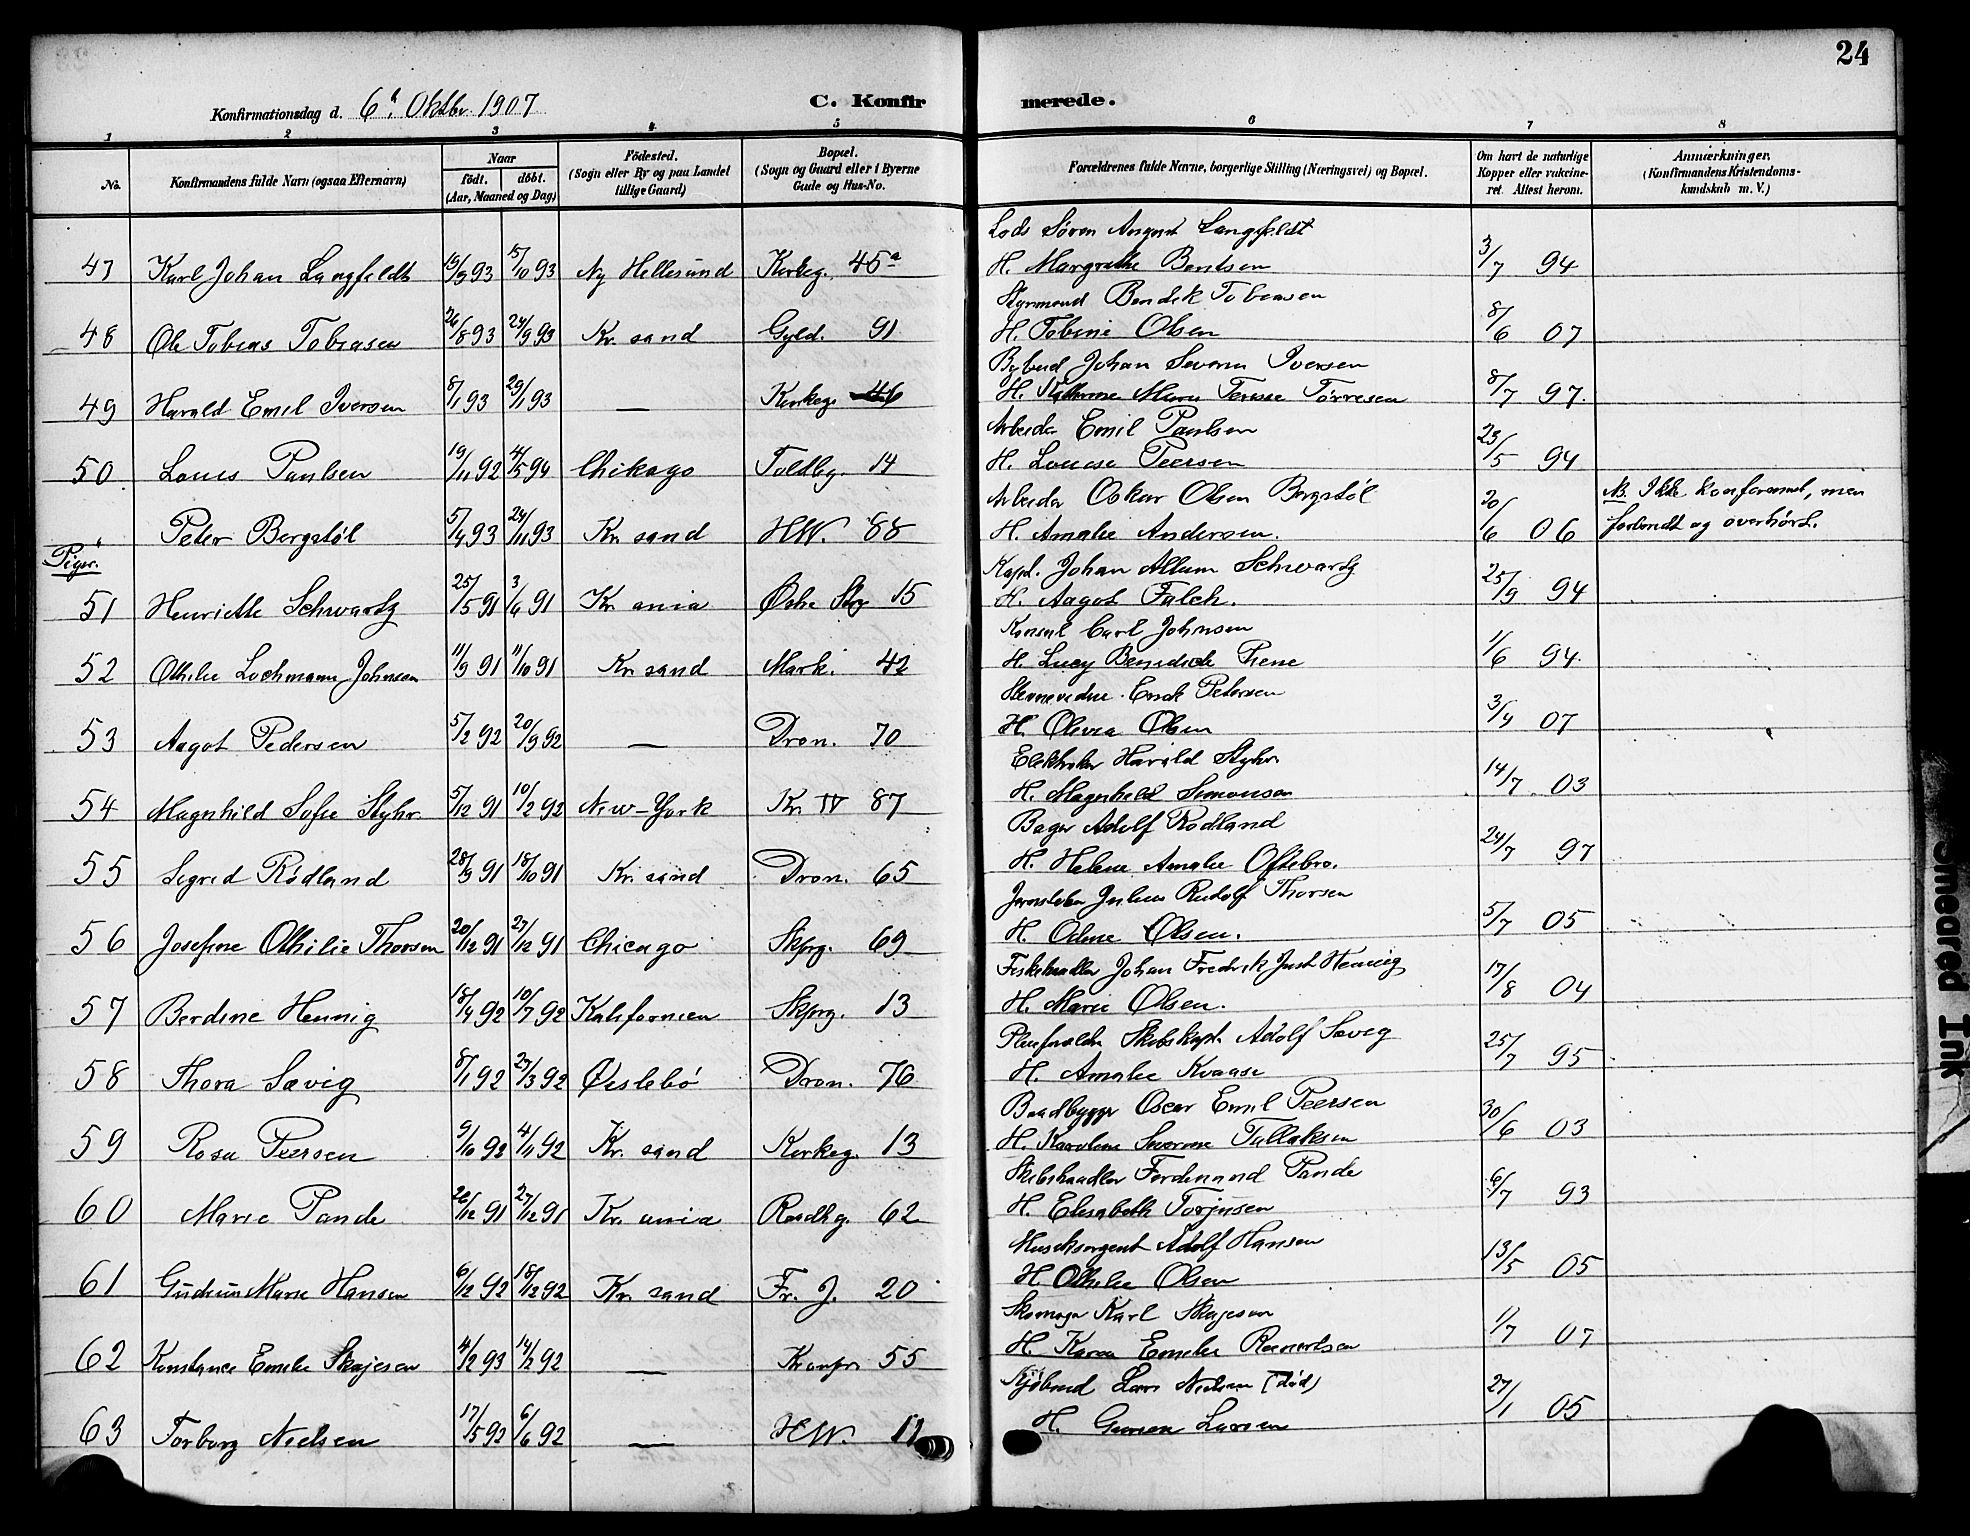 24
Konfirmationsdag d. 6t. Oktbr. 1907 C. Konfirmerede.
1 2 3 4 5 6 7 8
No. Konfirmandens fulde Navn (ogsaa Efternavn) Naar født. døbt. (Aar, Maaned og Dag) Fødested. (Sogn eller By og paa Landet tillige Gaard) Bopæl. (Sogn og Gaard eller i Byerne Gade og Hus-No. Forældrenes fulde Navne, borgerlige Stilling (Næringsvei) og Bopæl. Om havt de naturlige Kopper eller vakcineret. Attest herom. Anmærkninger. (Konfirmandens Kristendomskundskab m. V.)
Lods Søren August Langfeldt
47 Karl Johan Langfeldt 19/9 93 15/10 93 Ny Hellesund Kirkeg. 45a H. Margrethe Bentsen 3/7 94
Styrmand Bendik Tobiasen
48 Ole Tobias Tobiasen 26/8 93 24/9 93 Kr. sand Gyld. 91 H. Tobine Olsen 8/6 07
Bybud Johan Severin Iversen
49 Harald Emil Iversen 8/1 93 29/1 93 — Kirkeg. 46 H. Marie Terese Tørresen 8/7 97.
Arbeider Emil Paulsen
50 Louis Paulsen 19/11 92 4/5 94 Chikago Toldbg. 14 H. Louise Peersen 23/5 94
Arbeider Oskar Olsen Bergstøl NB. Ikke konfirmeret, men
Peter Bergstøl 5/4 93 24/11 93 Kr. sand HW. 88 H. Amalie Andersen. 20/6 06 forberedt og overhørt.
Piger.
Kapt. Johan Allum Schwartz
51 Henriette Schwartz 25/5 91 3/6 91 Kr. ania Østre Stg 15 H. Aagot Falch. 25/9 94
Konsul Carl Johnsen
52 Othilie Lochmann Johnsen 11/9 91 11/10 91 Kr. sand Mark. 42 H. Lucy Benedicte Isene 1/6 94.
Petersen
53 Aagot Pedersen 5/2 92 20/9 92 — Dron. 70 H. Olevia Olsen 3/9 07
Elektriker Harald Styhr
54 Magnhild Sofie Styhr 5/12 91 10/2 92 New-York Kr. IV 87 H. Magnhild Simonsen 14/7 03
Bager Adolf Rødland
55 Sigrid Rødland 28/9 91 18/10 91 Kr. sand Dron. 65 H. Helene Amalie Oftebro. 24/7 97
Jernstøber Julius Rudolf Thorsen
56 Josefine Othilie Thorsen 20/12 91 27/12 91 Chicago Skprg. 69 H. Odine Olsen. 5/7 05
Fiskehandler Johan Fredrik Just Hennig
57 Berdine Hennig 18/4 92 10/7 92 Kalifornien Skprg. 13 H. Marie Olsen. 17/8 04
Pleieforældre Skibskapt. Adolf Sævig
58 Thora Sævig 8/1 92 27/3 92 Øislebø Dron. 76 H. Amalie Kvaase 25/7 95
Baadbygger Oscar Emil Peersen
59 Rosa Peersen 9/10 92 4/11 92 Kr. sand Kirkeg. 13 H. Karoline Severine Tallaksen 30/6 03
Skibshandler Ferdinand Pande
60 Marie Pande 26/12 91 27/12 91 Kr. ania Raadhg. 62 H. Elisabeth Torjusen 6/7 93
Musiksergent Adolf Hansen
61 Gudrun Marie Hansen 6/12 92 18/12 92 Kr. sand Fr. J. 20 H. Othilie Olsen 13/5 05
Skomager Karl Skajesen
62 Konstance Emelie Skajesen 4/2 93 14/2 92 — Kronpr. 55 H. Karen Emelie Reinertsen 1/7 07
Kjøbmd Lars Nielsen (død)
63 Torborg Nielsen 17/5 92 6/6 92 — HW. 11 H. Larsen 27/1 05
Smeared Ink